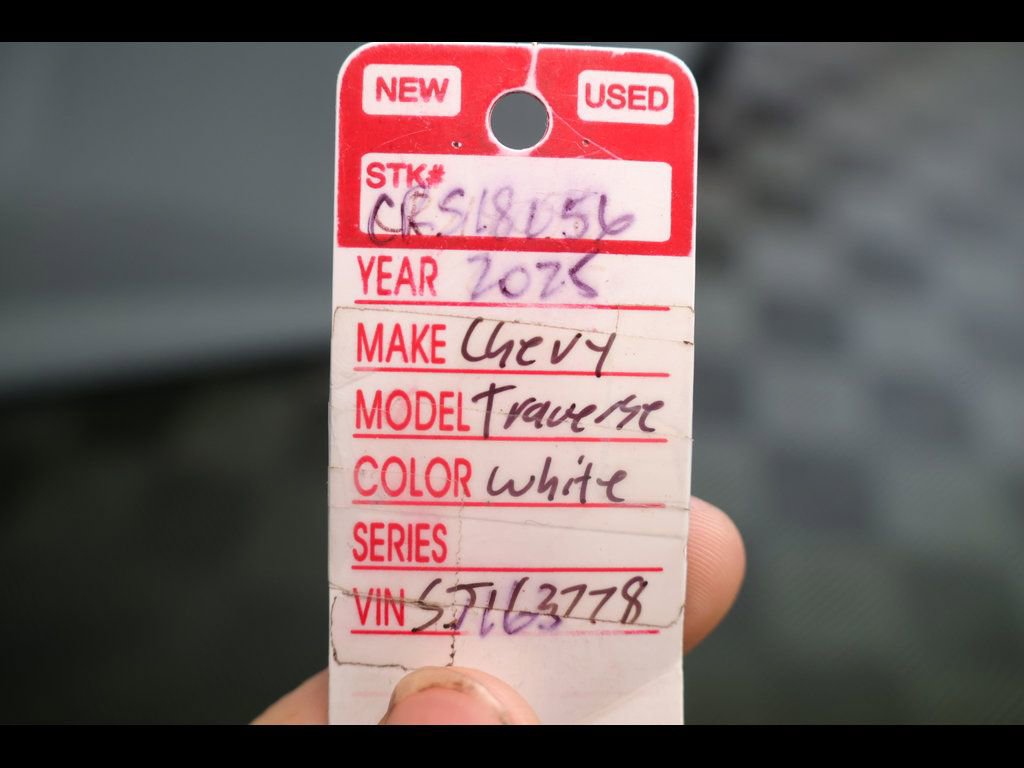 NEW USED
STK#
CRS18056
YEAR 2025
MAKE Chevy
MODEL Traverse
COLOR white
SERIES
VIN SJ163778